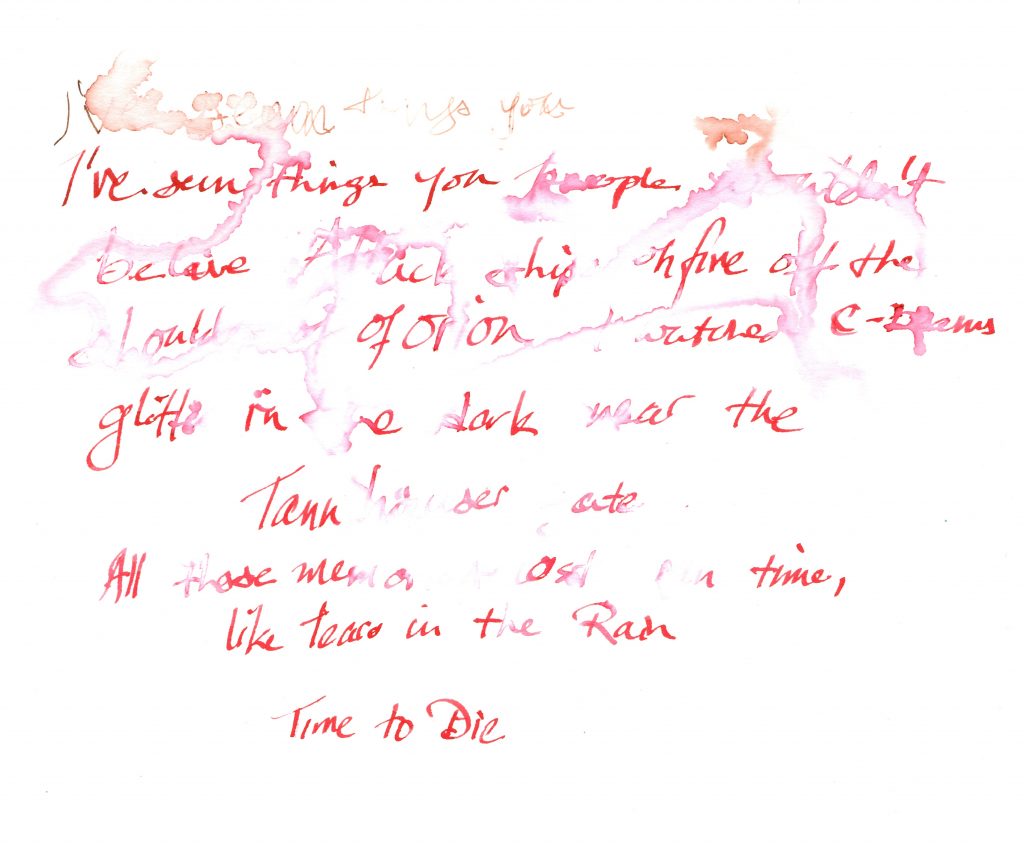 things you
I've seen things you people wouldn't
beleive Attack ships on fire off the
shoulder of Orion watched C-Beams
glitte in the dark near the
Tannhäuser gate
All those memories lost in time,
like tears in the Rain
Time to Die